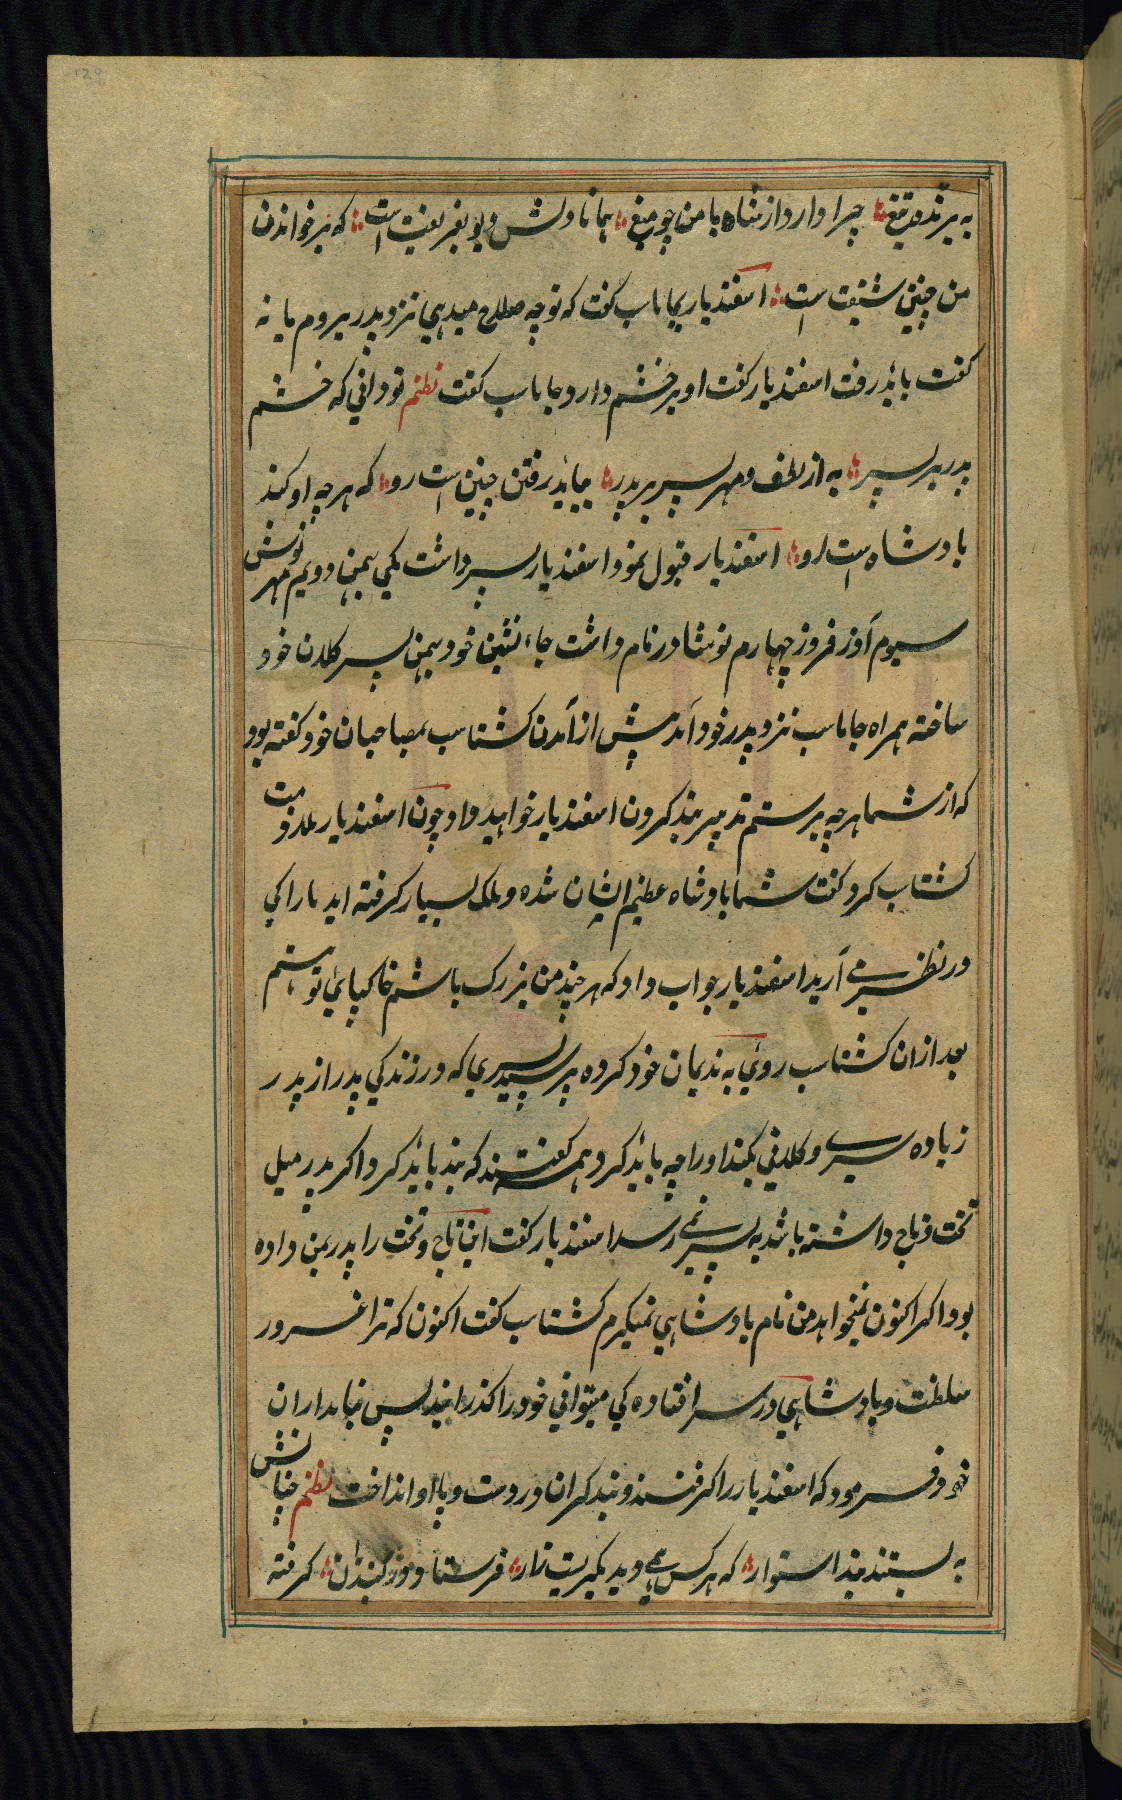 به برنده تیغ چرا دارد از شاه با من چو میغ همانا دلش دیو بفریفت است که بر خواندن
من چنین شیفت است اسفندیار بجاماسب گفت که تو چه صلاح میدهی نزد پدر بروم یا نه
گفت باید رفت اسفندیار گفت او بر خشم دارد جاماسب گفت نظم تو دانی که خشم
پدر بر پسر به از لطف و مهر پسر بر پدر بباید رفتن چنین است رو که هر چه او کند
پادشاه است او اسفندیار قبول نمود اسفندیار پسر داشت یکی بهمن دویم مهرنوش
سیوم آذر فروز چهارم نوشادر نام داشت جاء نشین خود بهمن پسر کلان خود
ساخته همراه جاماسب نزد پدر خود آمد پیش از آمدن گشتاسب بمصاحبان خود گفته بود
که از شما هر چه پرسم تدبیر بند کردن اسفندیار خواهید داد چون اسفندیار ملازمت
گشتاسب کرد گفت شما پادشاه عظیم الشان شده و ملک بسیار گرفته اید مارا کی
در نظر می آرید اسفندیار جواب داد که هر چند من بزرگ باشم خاکپای تو هستم
بعد ازان گشتاسب روی به ندیمان خود کرده پرسید پسری که در زندگی پدر از پدر
زیاده سری و کلانی بکند اورا چه باید کرد همه گفتند که بند باید کرد اگر پدر میل
تخت و تاج داشته باشد به پسر نمی رسد اسفندیار گفت این تاج و تخت را پدر بمن داده
بود اگر اکنون نمیخواهد من نام پادشاهی نمیگیرم گشتاسب گفت اکنون که ترا غرور
سلطنت و پادشاهی در سر افتاده کی میتوانی خود را گذرانید پس بنامداران
خود فرمود که اسفندیار را گرفتند و بند گران در دست و پا او انداخت نظم چنانش
به بستند بند استوار که هر کس همی دید بگریست زار فرستاد و در گنبدان گرفته